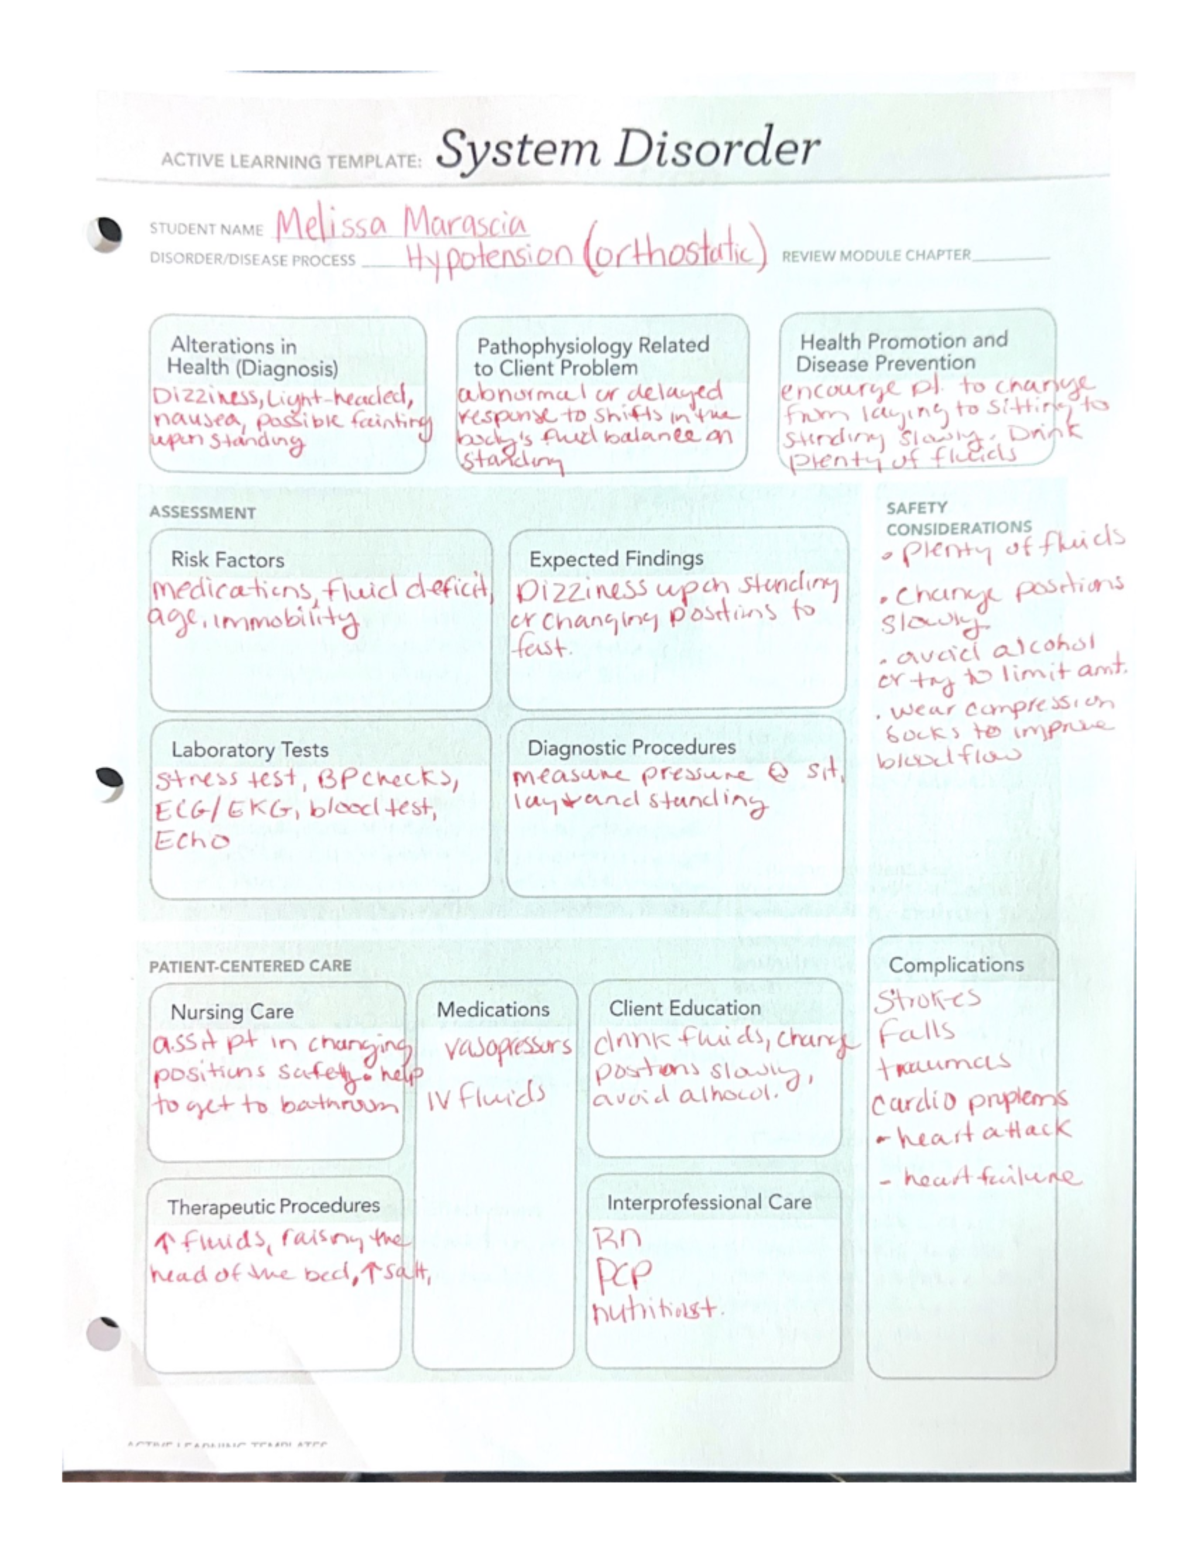 ACTIVE LEARNING TEMPLATE: System Disorder
STUDENT NAME Melissa Marascia
DISORDER/DISEASE PROCESS Hypotension (orthostatic) REVIEW MODULE CHAPTER
Alterations in
Health (Diagnosis)
Dizziness, Light-headed,
nausea, possible fainting
upon standing
Pathophysiology Related
to Client Problem
abnormal or delayed
response to shifts in the
body's fluid balance on
standing
Health Promotion and
Disease Prevention
encourge pt. to change
from laying to sitting to
stinding slowly. Drink
plenty of fluids
ASSESSMENT
Risk Factors
medications, fluid deficit,
age, immobility
Expected Findings
Dizziness upon standing
or changing positions to
fast.
SAFETY
CONSIDERATIONS
• plenty of fluids
• change positions
slowly.
• avoid alcohol
or try to limit amt.
• wear compression
socks to improve
blood flow
Laboratory Tests
stress test, BP checks,
ECG/EKG, blood test,
Echo
Diagnostic Procedures
measure pressure @ sit,
lay + and standing
PATIENT-CENTERED CARE
Nursing Care
assit pt in changing
positions safety. help
to get to bathroom
Medications
vasopressors
IV fluids
Client Education
drink fluids, change
positions slowly,
avoid alhocol.
Complications
Strokes
Falls
traumas
cardio problems
- heart attack
- heart failure
Therapeutic Procedures
↑ fluids, raising the
head of the bed, ↑ salt,
Interprofessional Care
RN
PCP
nutritiost.
ACTIVE LEARNING TEMPLATES